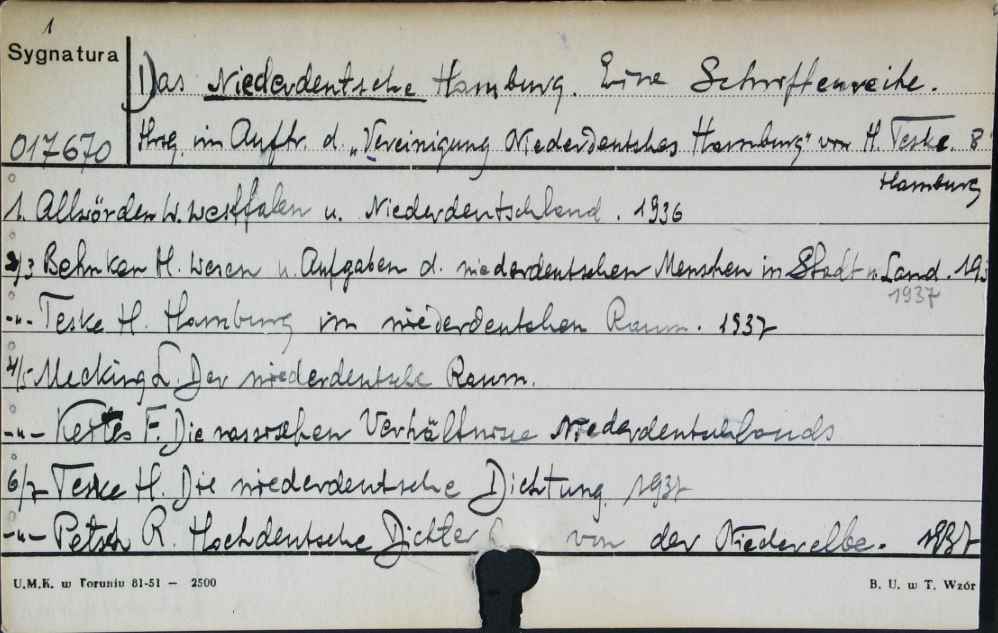 1
Sygnatura
Das Niederdeutsche Hamburg. Eine Schriftenreihe.
017670
Hrsg. im Auftr. d. „Vereinigung Niederdeutsches Hamburg" von H. Teske. 8°
Hamburg
1. Allwörden W. Westfalen u. Niederdeutschland. 1936
2/3 Behnken H. Wesen u. Aufgaben d. niederdeutschen Menschen in Stadt u. Land. 193
1937
-„- Teske H. Hamburg im niederdeutschen Raum. 1937
4/5 Mecking L. Der niederdeutsche Raum.
-„- F. Die rassischen Verhältnisse Niederdeutschlands
6/7 Teske H. Die niederdeutsche Dichtung. 1937
-„- Petsch R. Hochdeutsche Dichter von der Niederelbe. 1937
U.M.K. w Toruniu 81-51 — 2500
B. U. w T. Wzór